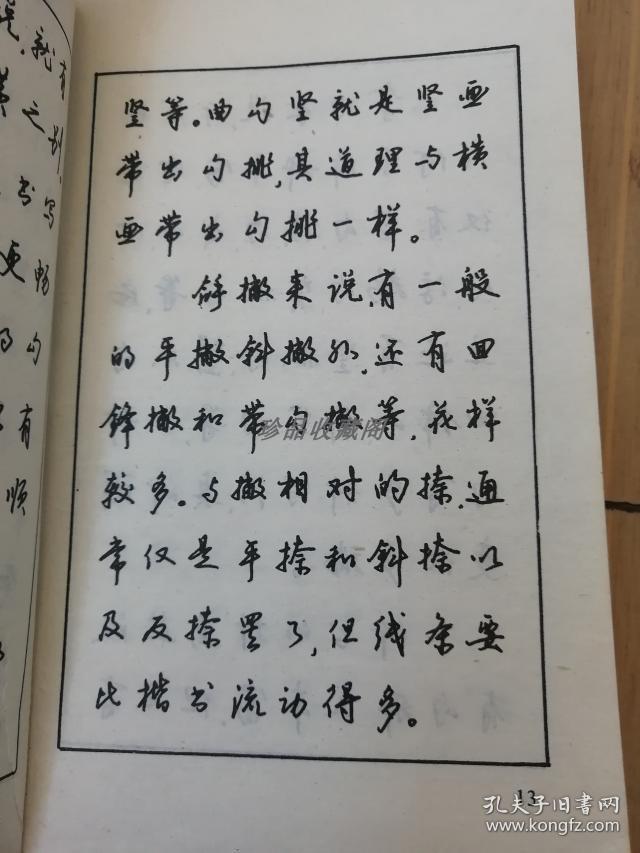 竖等。曲勾竖就是竖画
带出勾挑,其道理与横
画带出勾挑一样。
斜撇来说,有一般
的平撇斜撇外,还有回
锋撇和带勾撇等,花样
较多。与撇相对的捺,通
常仅是平捺和斜捺以
及反捺罢了,但线条要
比楷书流动得多。
13
珍品收藏阁
孔夫子旧书网
www.kongfz.com